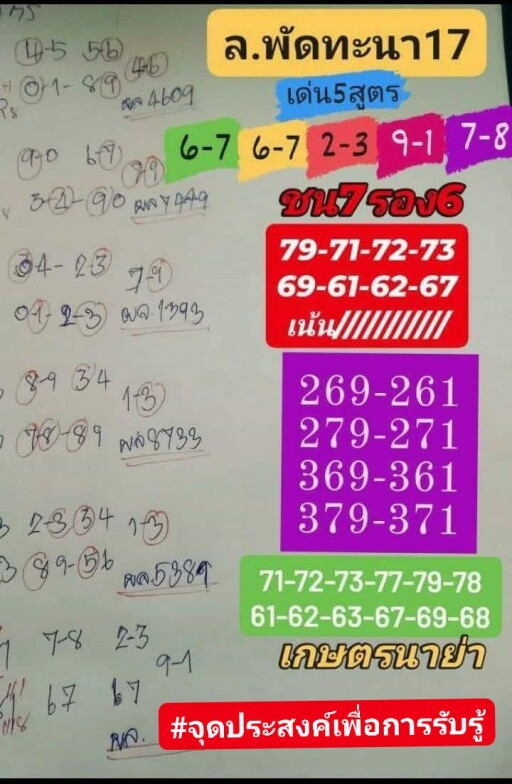 ล.พัดทะนา17
เด่น5สูตร
6-7 6-7 2-3 9-1 7-8
ชน7รอง6
79-71-72-73
69-61-62-67
เน้น///////////
269-261
279-271
369-361
379-371
71-72-73-77-79-78
61-62-63-67-69-68
เกษตรนาย่า
#จุดประสงค์เพื่อการรับรู้
4-5 56 46
01-89 ผล 4609
9-0 67
ผล 7449
34-23 7-9
01-2-3 ผล.1393
8-9 34 1-3
78-89 ผล 8733
2-3 34 1-3
89-56 ผล.5389
7-8 2-3
9-1
67 67
ผล.